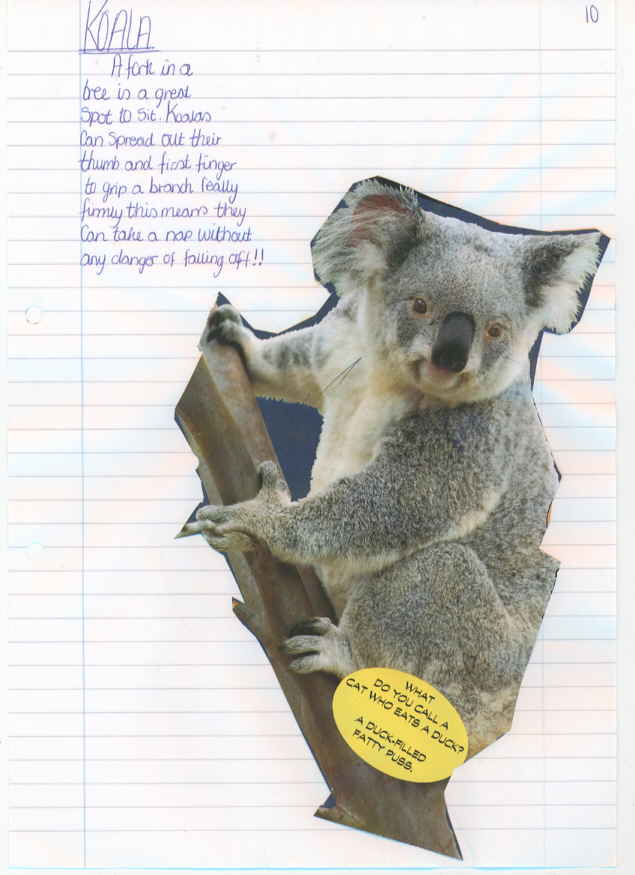 KOALA
10
A fork in a
tree is a great
Spot to Sit. Koalas
Can Spread out their
thumb and first finger
to grip a branch really
firmly this means they
Can take a nap without
any danger of falling off!!
WHAT
DO YOU CALL A
CAT WHO EATS A DUCK?
A DUCK-FILLED
FATTY PUSS.